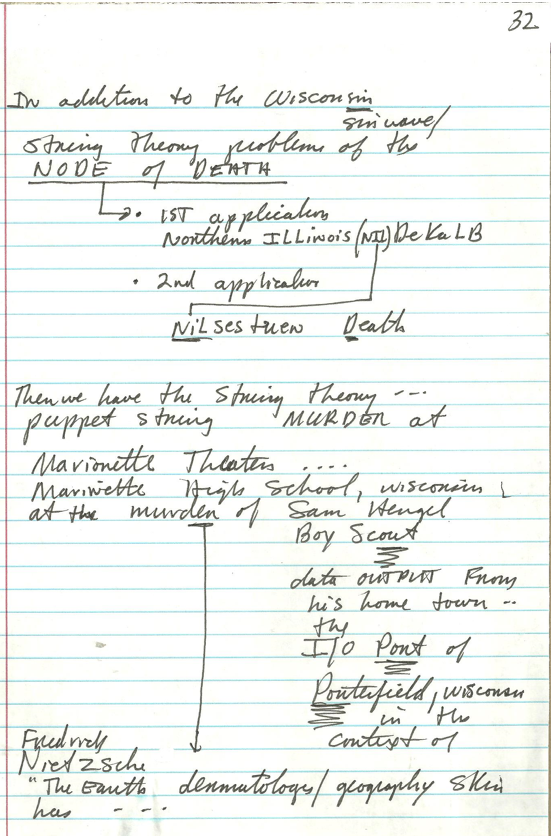 32
In addition to the Wisconsin
sin wave/
string theory problems of the
NODE of DEATH
• 1ST application
Northern ILLinois (NIL) DeKaLB
• 2nd application
NiLses tuen Death
Then we have the string theory ---
puppet string MURDER at
Marionette Theaters ....
Marinette High School, wisconsin
at the murder of Sam Hengel
Boy Scout
data OUTPUT From
his home town --
the
I/O Port of
Porterfield, wisconsin
in the
context of
Fredrick
Nietzsche
"The Earth dermatology/geography skin
has - - - -